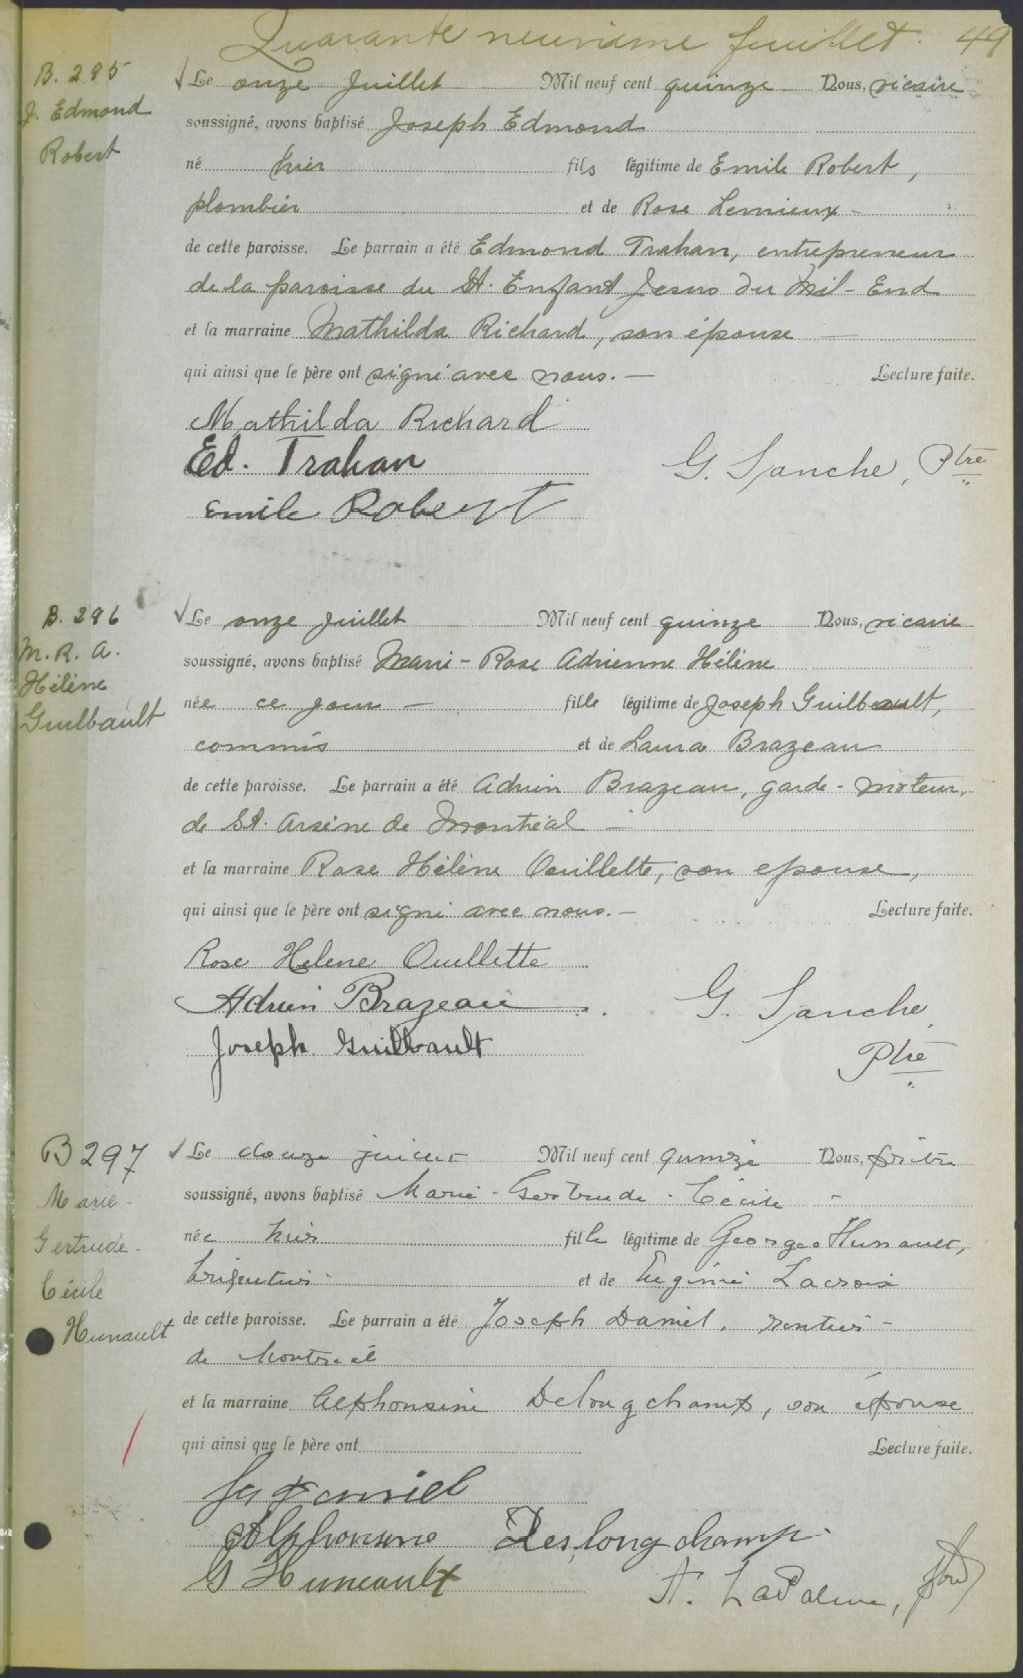 Quarante neuvième feuillet. 49
B. 295
J. Edmond
Robert
Le onze Juillet Mil neuf cent quinze Nous, vicaire
soussigné, avons baptisé Joseph Edmond
né hier fils légitime de Emile Robert,
plombier et de Rose Lemieux -
de cette paroisse. Le parrain a été Edmond Trahan, entrepreneur
de la paroisse du St. Enfant Jesus du Mil-End
et la marraine Mathilda Richard, son épouse —
qui ainsi que le père ont signé avec nous. — Lecture faite.
Mathilda Richard
Ed. Trahan
G. Sanche, Ptre
Emile Robert
B. 296
M. R. A.
Hélène
Guilbault
Le onze Juillet Mil neuf cent quinze Nous, vicaire
soussigné, avons baptisé Marie-Rose Adrienne Hélène
née ce jour — fille légitime de Joseph Guilbault,
commis et de Laura Brazeau
de cette paroisse. Le parrain a été Adrien Brazeau, garde-moteur,
de St. Arsène de Montréal —
et la marraine Rose Hélène Ouillette, son epouse,
qui ainsi que le père ont signé avec nous. — Lecture faite.
Rose Helene Ouellette
Adrien Brazeau
G. Sanche
Joseph Guilbault
Ptre
B 297
Marie-
Gertrude-
Cécile
Hunault
Le douze juillet Mil neuf cent quinze Nous, prêtre
soussigné, avons baptisé Marie-Gertrude-Cécile -
née hier fille légitime de Georges Hunault,
briquetier et de Eugénie Lacroix
de cette paroisse. Le parrain a été Joseph Daniel, rentier -
de Montréal
et la marraine Alphonsine Delongchamp, son épouse
qui ainsi que le père ont Lecture faite.
Jos Daniel
Alphonsine Deslongchamp
G Huneault
A. LaPalme, ptre